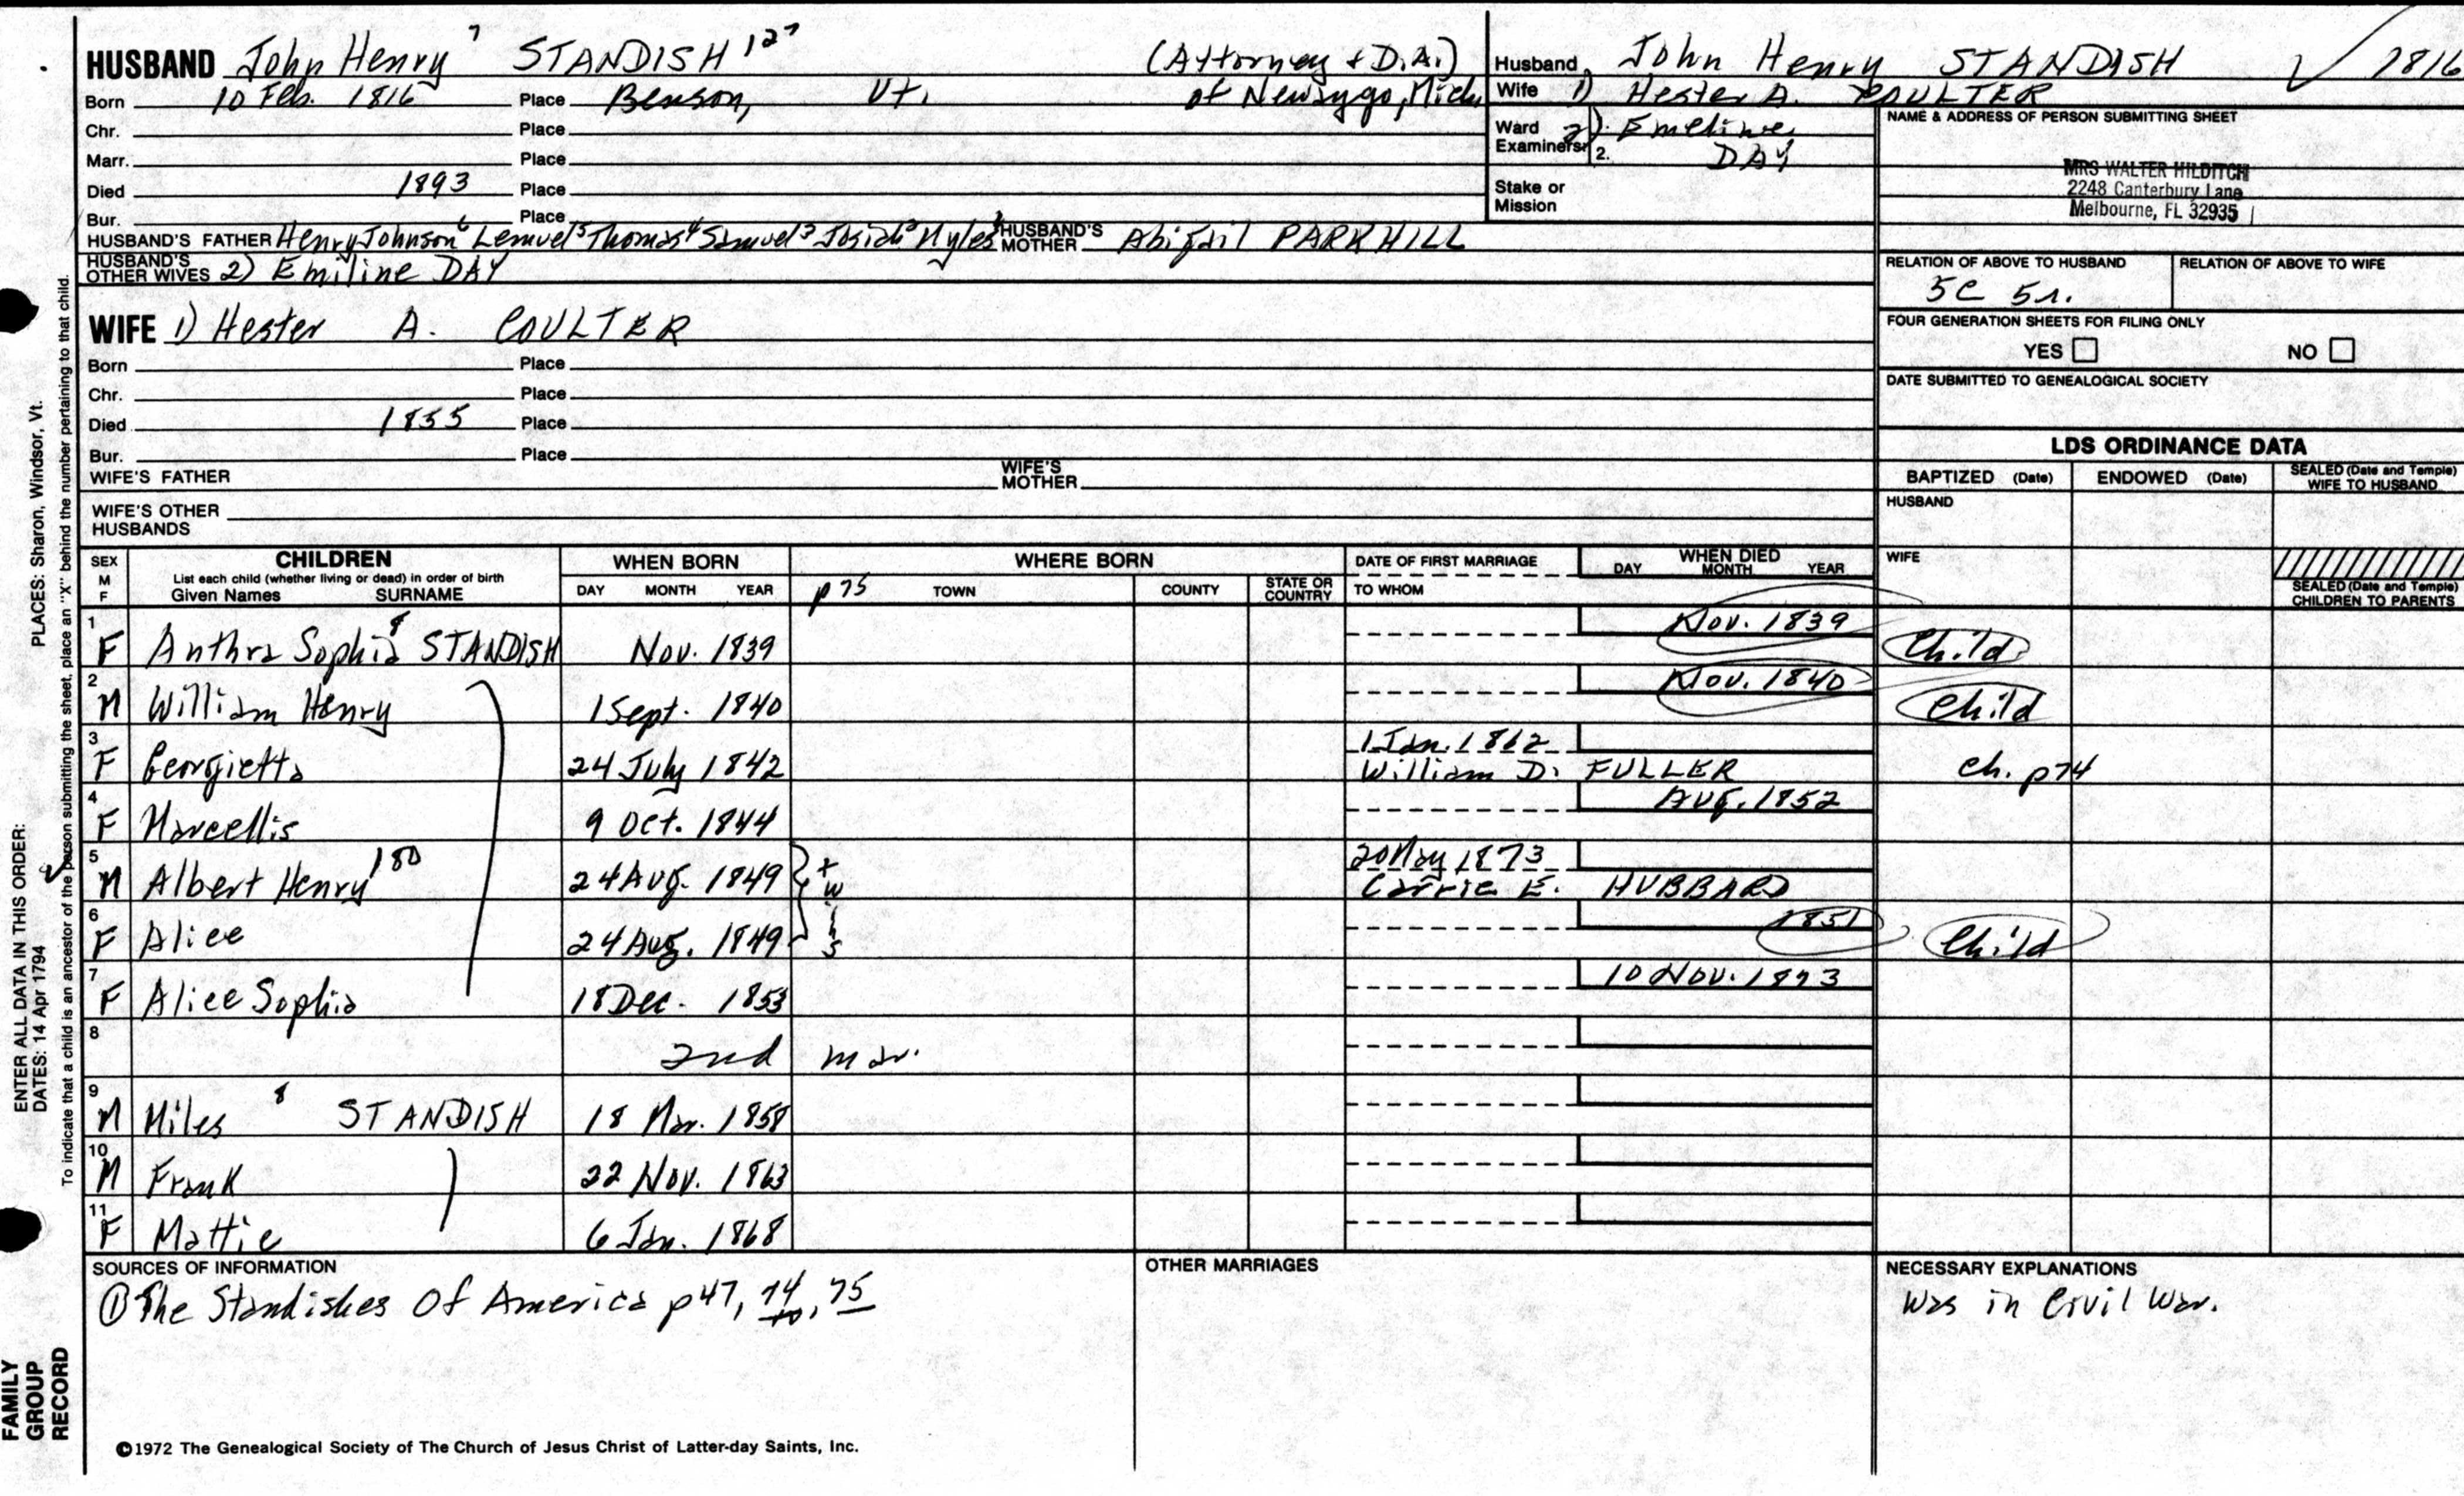 HUSBAND John Henry 7 STANDISH 127 (Attorney & D.A.)
Born 10 Feb. 1816 Place Benson, Vt. of Newaygo, Mich
Chr. Place
Marr. Place
Died 1893 Place
Bur. Place
HUSBAND'S FATHER Henry Johnson 6 Lemuel 5 Thomas 4 Samuel 3 Josiah 2 Myles 1 HUSBAND'S MOTHER Abigail PARKHILL
HUSBAND'S OTHER WIVES 2) Emiline DAY
WIFE 1) Hester A. COULTER
Born Place
Chr. Place
Died 1855 Place
Bur. Place
WIFE'S FATHER WIFE'S MOTHER
WIFE'S OTHER HUSBANDS
Husband John Henry STANDISH 1816
Wife 1) Hester A. COULTER
Ward 2). Emeline
Examiners: 2. DAY
Stake or Mission
NAME & ADDRESS OF PERSON SUBMITTING SHEET
MRS WALTER HILDITCH
2248 Canterbury Lane
Melbourne, FL 32935
RELATION OF ABOVE TO HUSBAND RELATION OF ABOVE TO WIFE
5C 5r.
FOUR GENERATION SHEETS FOR FILING ONLY
YES NO
DATE SUBMITTED TO GENEALOGICAL SOCIETY
LDS ORDINANCE DATA
BAPTIZED (Date) ENDOWED (Date) SEALED (Date and Temple) WIFE TO HUSBAND
HUSBAND
WIFE
SEALED (Date and Temple) CHILDREN TO PARENTS
SEX M F CHILDREN WHEN BORN WHERE BORN DATE OF FIRST MARRIAGE WHEN DIED
List each child (whether living or dead) in order of birth
Given Names SURNAME DAY MONTH YEAR p75 TOWN COUNTY STATE OR COUNTRY TO WHOM DAY MONTH YEAR
1 F Anthra Sophia 8 STANDISH Nov. 1839 Nov. 1839 Child
2 M William Henry 1 Sept. 1840 Nov. 1840 Child
3 F Georgietta 24 July 1842 1 Jan. 1862 William D. FULLER ch. p74
4 F Marcellis 9 Oct. 1844 Aug. 1852
5 M Albert Henry 180 24 Aug. 1849 twins 20 May 1873 Carrie E. HUBBARD
6 F Alice 24 Aug. 1849 1851 Child
7 F Alice Sophia 18 Dec. 1853 10 Nov. 1873
8 2nd mar.
9 M Miles 8 STANDISH 18 Mar. 1858
10 M Frank 22 Nov. 1863
11 F Mattie 6 Jan. 1868
SOURCES OF INFORMATION
① The Standishes Of America p47, 74, 75
OTHER MARRIAGES
NECESSARY EXPLANATIONS
Was in Civil War.
©1972 The Genealogical Society of The Church of Jesus Christ of Latter-day Saints, Inc.
FAMILY GROUP RECORD
ENTER ALL DATA IN THIS ORDER:
DATES: 14 Apr 1794
PLACES: Sharon, Windsor, Vt.
To indicate that a child is an ancestor of the person submitting the sheet, place an "X" behind the number pertaining to that child.